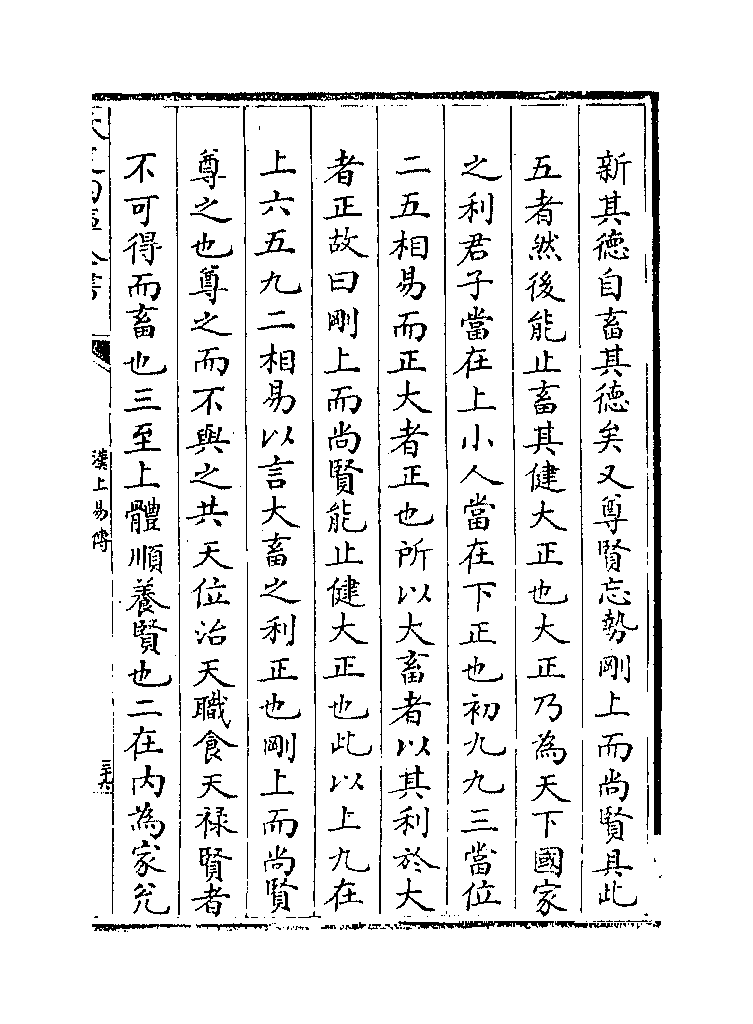 新其德自畜其德矣又尊賢忘勢剛上而尚賢具此
五者然後能止畜其健大正也大正乃為天下國家
之利君子當在上小人當在下正也初九九三當位
二五相易而正大者正也所以大畜者以其利於大
者正故曰剛上而尚賢能止健大正也此以上九在
上六五九二相易以言大畜之利正也剛上而尚賢
尊之也尊之而不與之共天位治天職食天禄賢者
不可得而畜也三至上體順養賢也二在内為家兊
漢上易傳
三十九